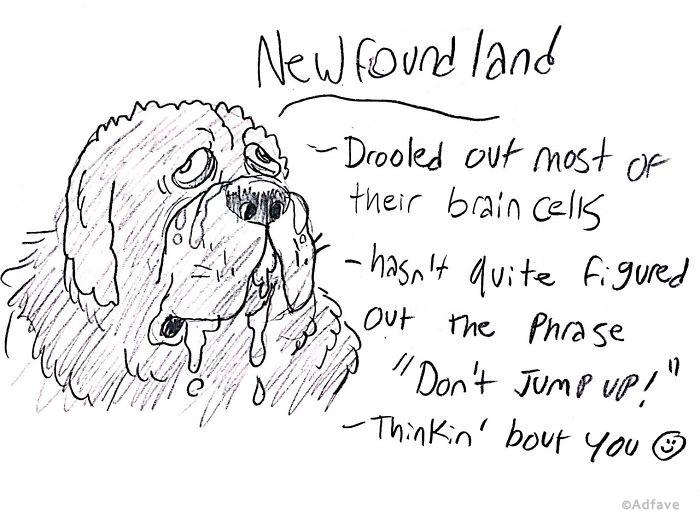 Newfoundland
- Drooled out most of
their brain cells
- hasn't quite figured
out the phrase
"Don't Jump up!"
- Thinkin' bout you ☺
©Adfave